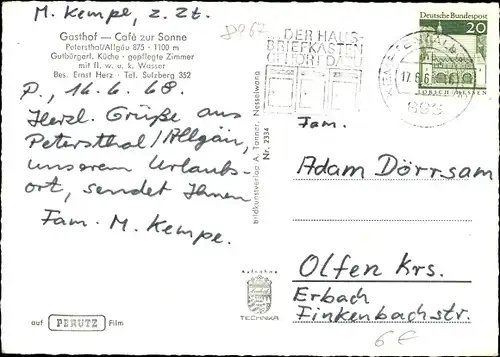 M. Kempe, z. Zt.
Gasthof — Café zur Sonne
Petersthal/Allgäu 875 · 1100 m
Gutbürgerl. Küche · gepflegte Zimmer
mit fl. w. u. k. Wasser
Bes. Ernst Herz · Tel. Sulzberg 352
P., 16.6.68.
Herzl. Grüße aus
Petersthal/Allgäu,
unserem Urlaubs-
ort, sendet Ihnen
Fam. M. Kempe.
auf PERUTZ Film
Bildkunstverlag A. Tanner, Nesselwang
Nr. 2334
Aufnahme
TECHNIKA
DER HAUS-
BRIEFKASTEN
GEHÖRT DAZU
Deutsche Bundespost
20
LORSCH/HESSEN
17.6.6
896
Fam.
Adam Dörrsam
Olfen Krs.
Erbach
Finkenbachstr.
6€